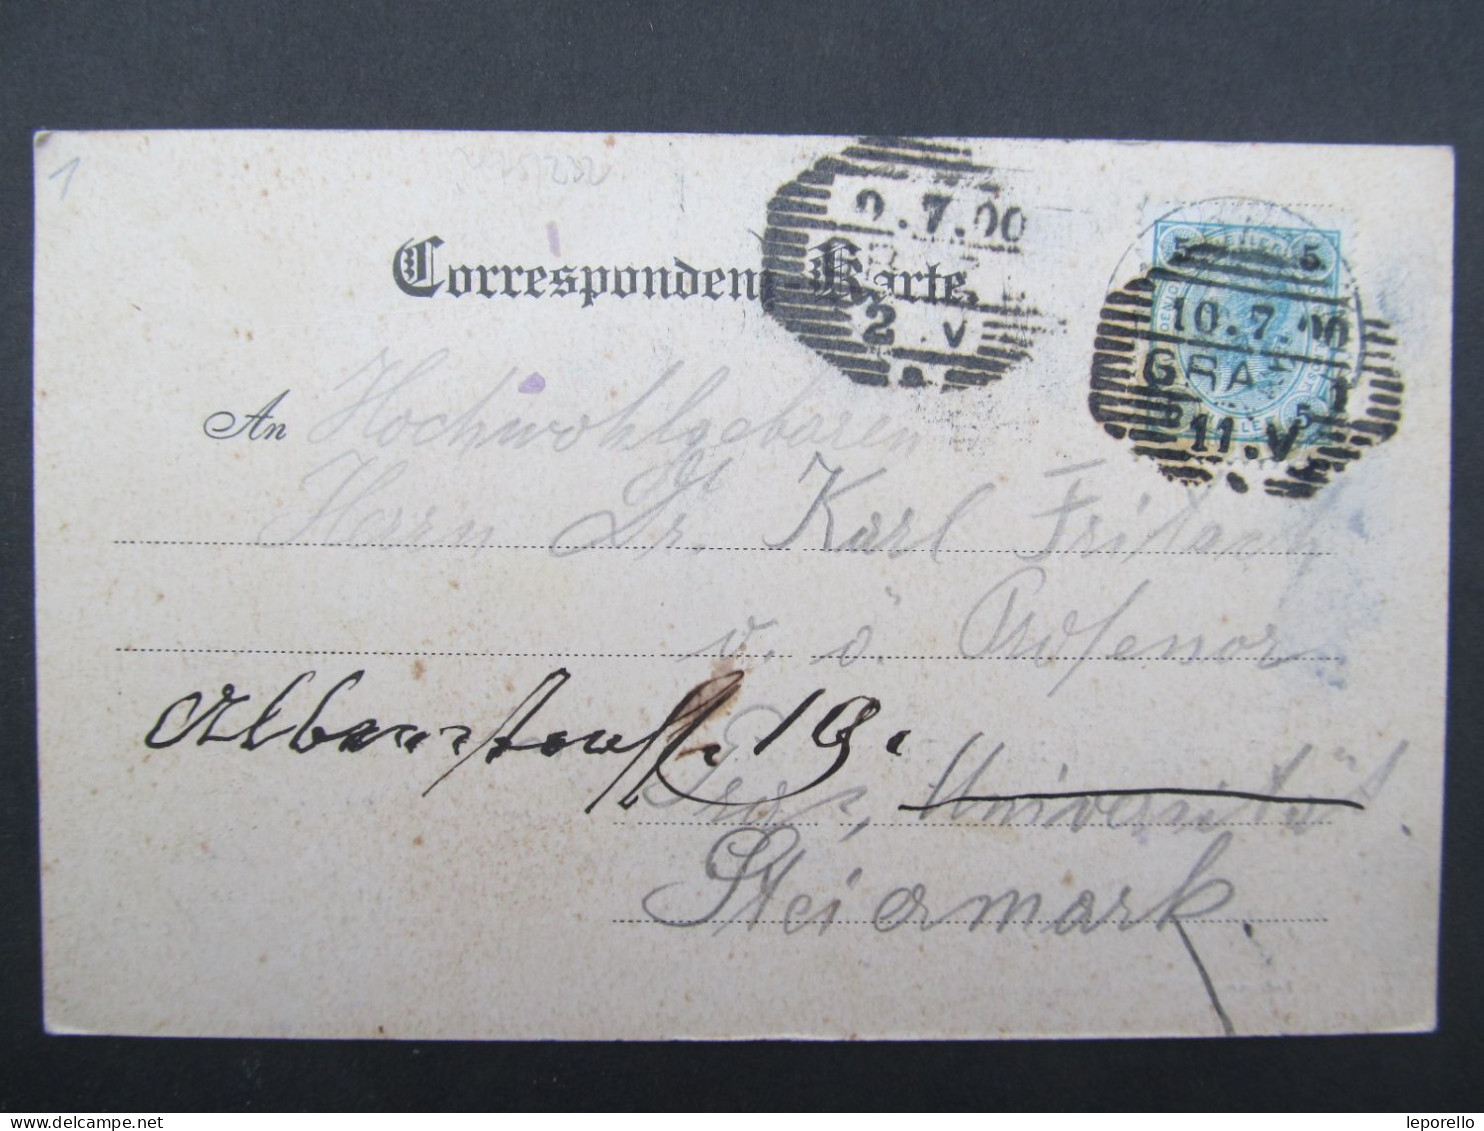 1
Correspondenz-Karte.
9.7.00
2.V
5 5
10.7.00
GRAZ 1
11.V
5
An Hochwohlgeboren
Herrn Dr. Karl Fritsch
o. ö. Professor
19.
Graz, Universität.
Steiermark.
leporello